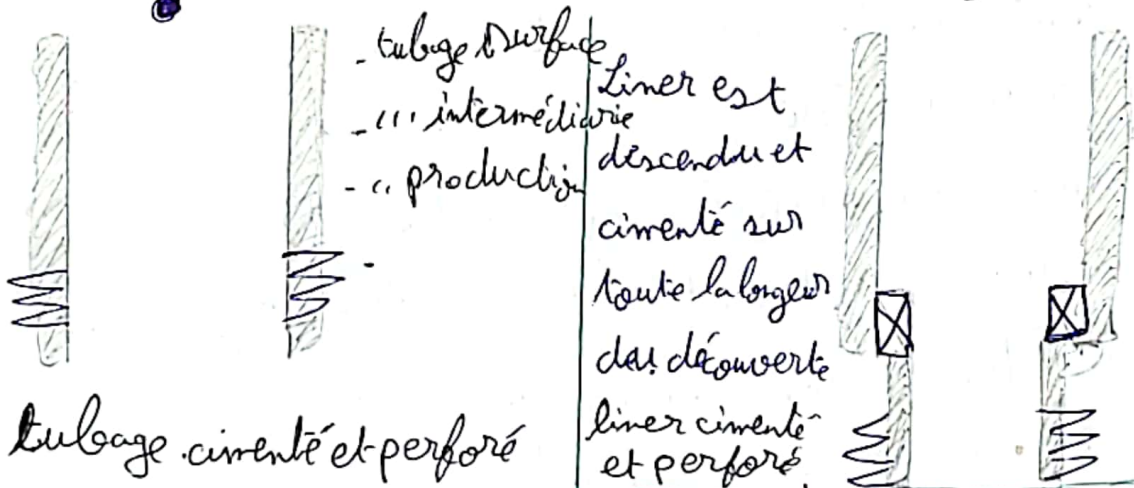 - tubage surface
- ''' intermédiarie
- '' production
-
tubage cimenté et perforé
Liner est
descendu et
cimenté sur
toute la longeur
découverte
liner cimenté
et perforé